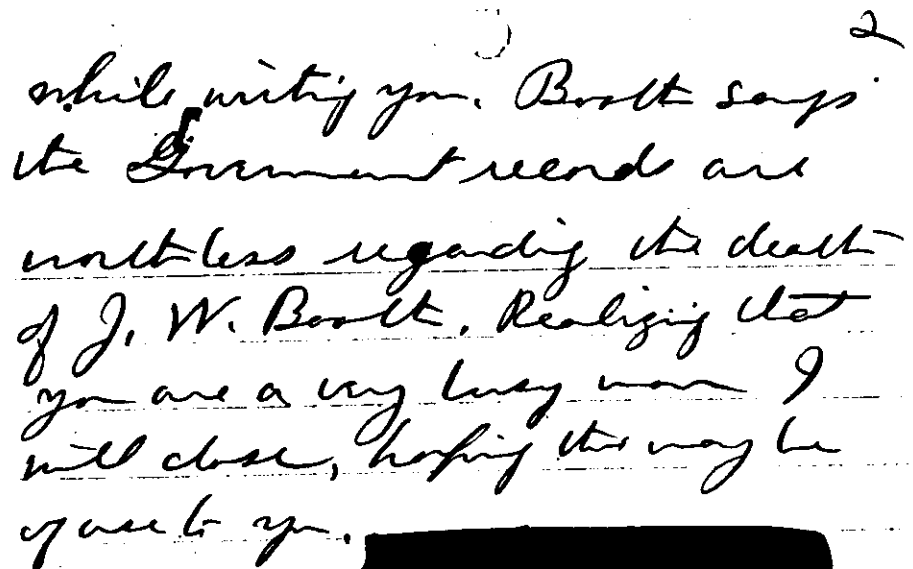 2
while writing you. Booth says
the Government records are
worthless regarding the death
of J. W. Booth. Realizing that
you are a very busy man I
will close, hoping this may be
of use to you.